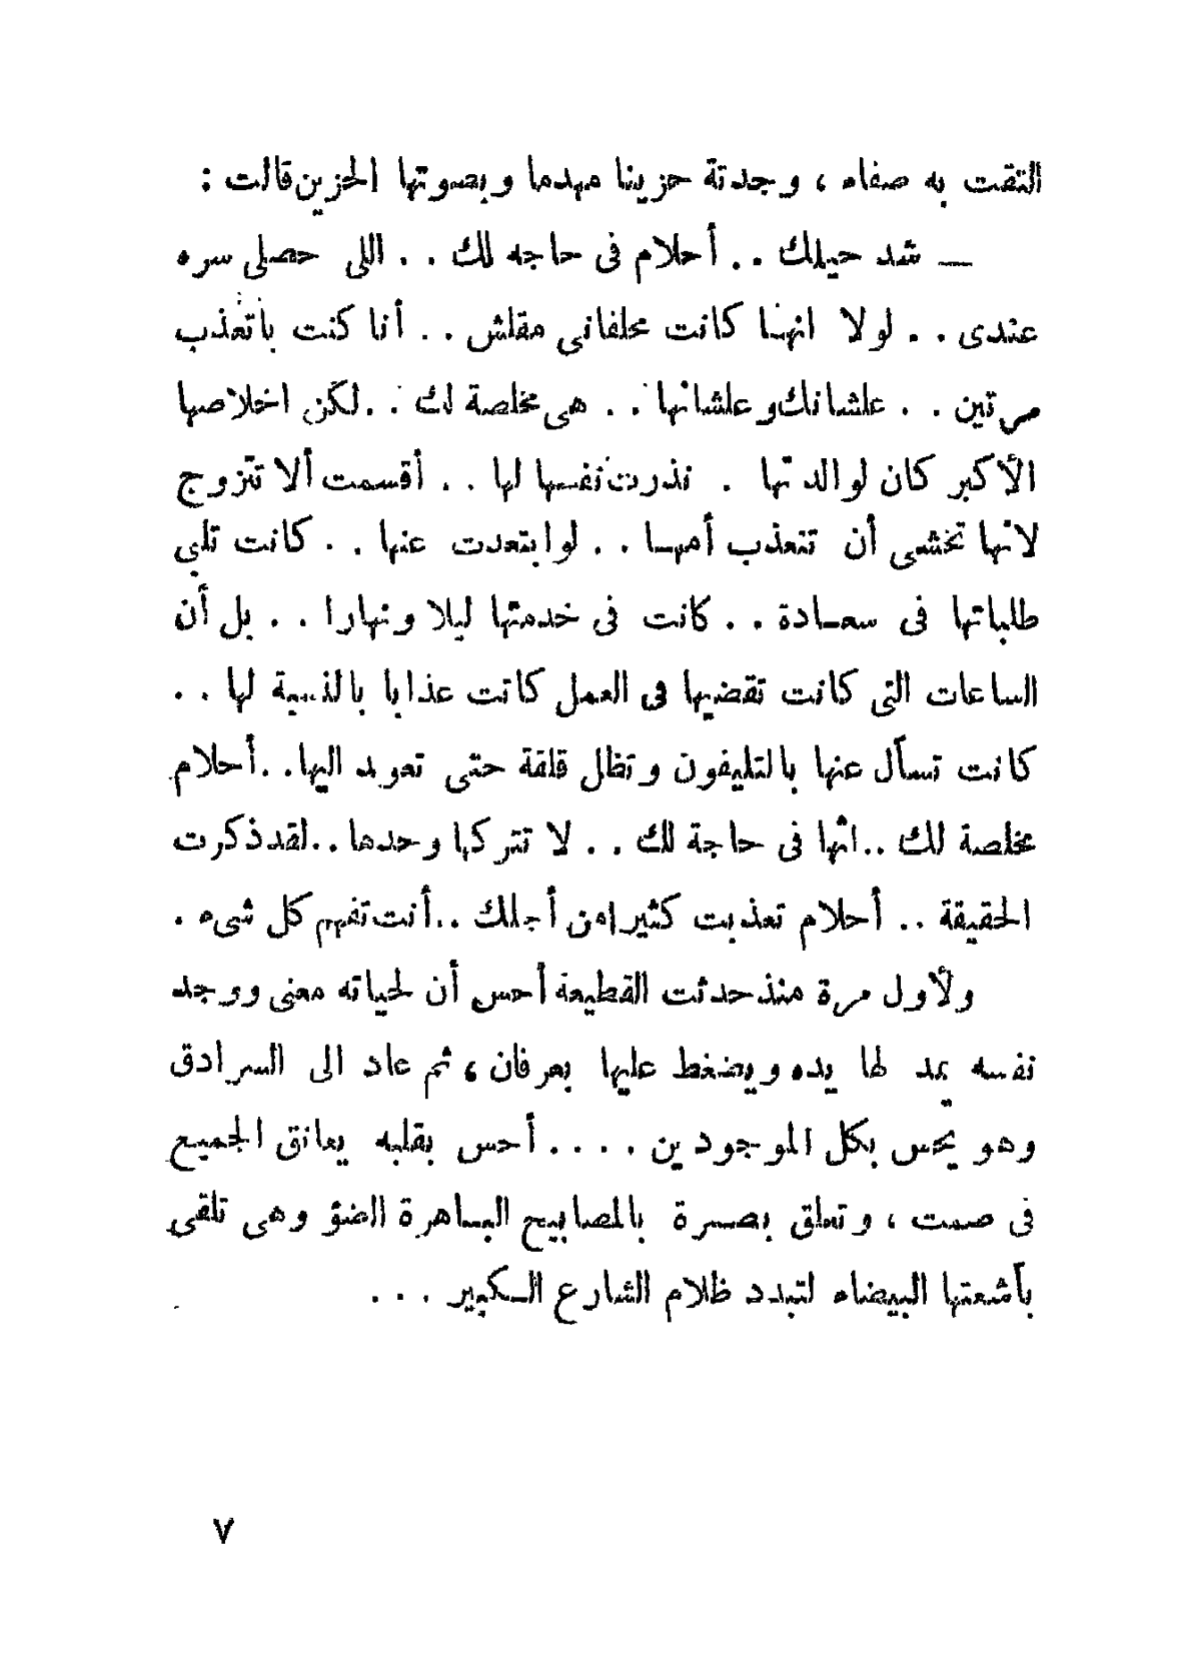 التقت به صفاء ، وجدتة حزينا مهدما وبصوتها الحزين قالت :
— شد حيلك . . أحلام فى حاجه لك . . اللى حصلى سره
عندى . . لولا انهـا كانت محلفانى مقلش . . أنا كنت باتعذب
مرتين . . علشانك وعلشانها . . هى مخلصة لك . . لكن اخلاصها
الأكبر كان لوالدتها . نذرت نفسها لها . . أقسمت ألا تتزوج
لانها تخشى أن تتعذب أمهـا . . لو ابتعدت عنها . . كانت تلبى
طلباتها فى سعـادة . . كانت فى خدمتها ليلا ونهارا . . بل أن
الساعات التى كانت تقضيها فى العمل كانت عذابا بالنسبة لها . .
كانت تسأل عنها بالتليفون وتظل قلقة حتى تعود اليها . . أحلام
مخلصة لك . . انها فى حاجة لك . . لا تتركها وحدها . . لقد ذكرت
الحقيقة . . أحلام تعذبت كثيرا من أجلك . . أنت تفهم كل شىء .
ولأول مرة منذ حدثت القطيعة أحس أن لحياته معنى ووجد
نفسه يمد لها يده ويضغط عليها بعرفان ، ثم عاد الى السرادق
وهو يحس بكل الموجودين . . . . أحس بقلبه يعانق الجميع
فى صمت ، وتعلق بصـرة بالمصابيح الساهرة الضؤ وهى تلقى
بأشعتها البيضاء لتبدد ظلام الشارع الـكبير . . .
٧